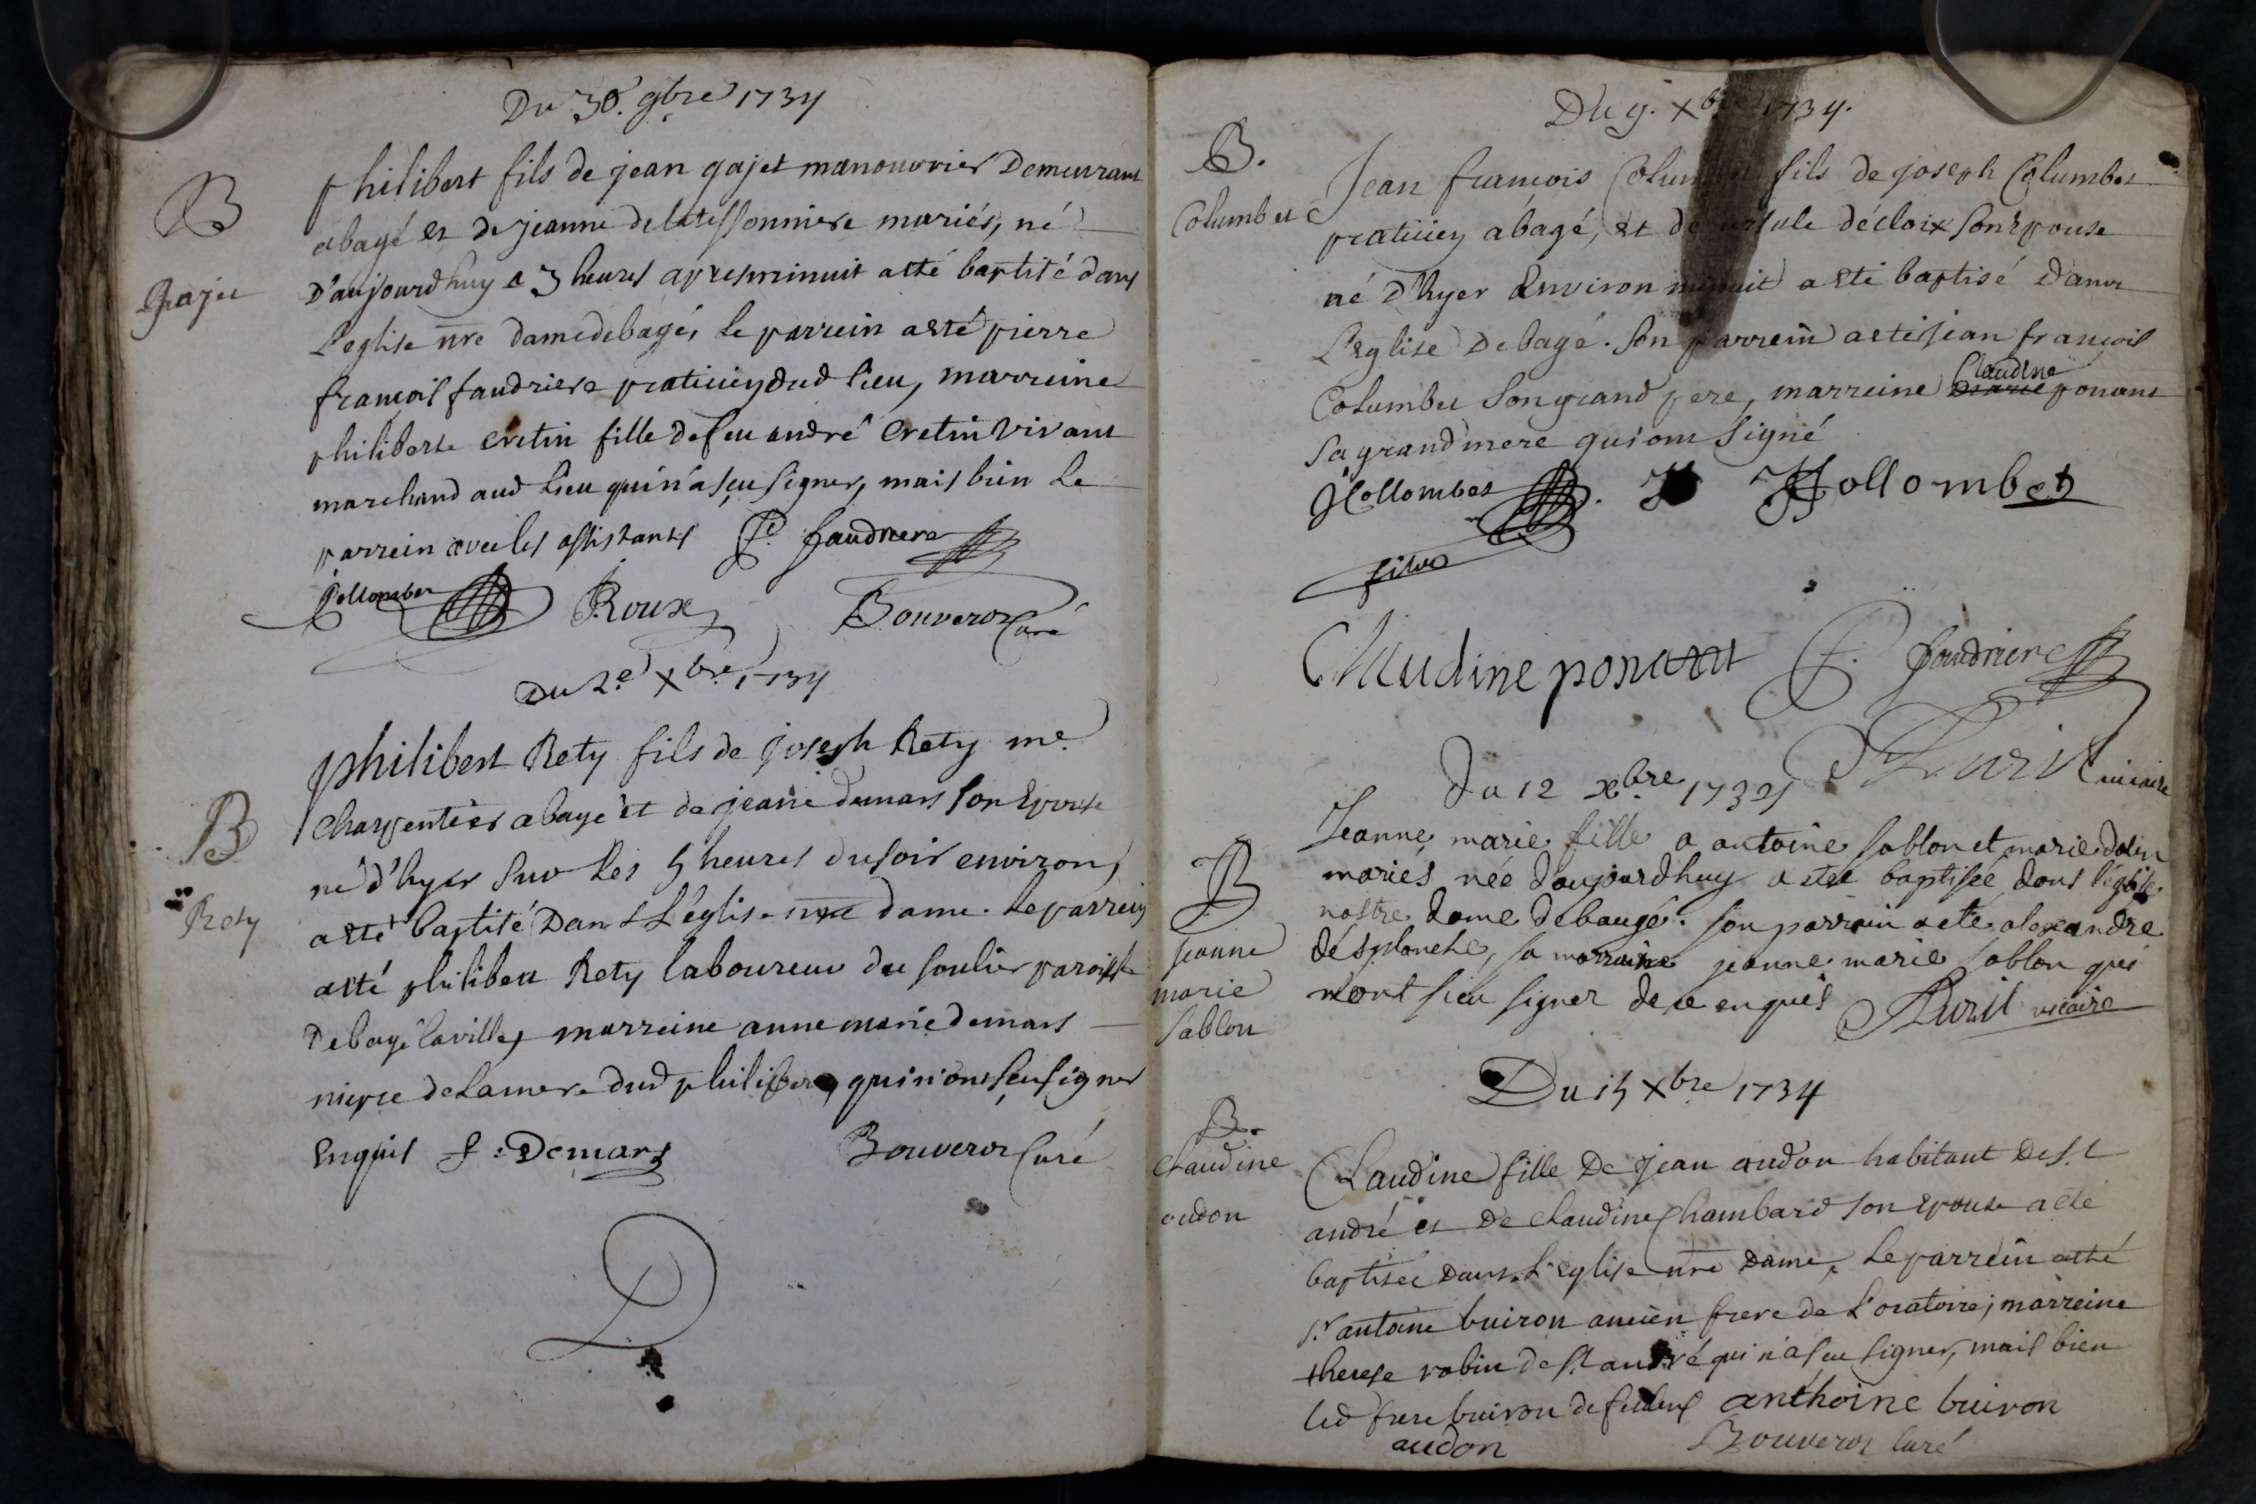 Du 30. 9bre 1734
B
Gajet
philibert fils de jean gajet manouvrier Demeurant
abagé et de jeanne delatessonniere mariés, né
D'aujourdhuy a 3 heures apresminuit aesté baptisé dans
L'eglise nre dame debagé, le parrein aesté pierre
françois faudriere praticien dud lieu, marreine
philiberte cretin fille defeu andré cretin vivant
marchand aud Lieu qui n'a sçu signer, mais bien le
parrein avec les assistants P. faudriere
Collombet Roux Bouveror Curé
Du 2e Xbre 1734
B
Rety
philibert Rety fils de joseph Rety me.
Charpentier abagé et de jeane demars son Epouse
né d'hyer sur les 5 heures dusoir environ,
aesté baptisé Dans L'église nre dame. le parrein
aesté philibert Rety laboureur du soulier paroisse
Debagé laville, marreine anne marie demars
niepce delamere dud philibert, qui n'ont sçeu signer
Enquis f : Demars Bouveror Curé
Du 9. Xbre 1734.
B.
Columbet
Jean françois Columbet fils de joseph Columbet
praticien àbagé, et de ursule décloix son Epouse
né d'hyer Environ minuit a esté baptisé dans
L'Eglise Debagé. Son parrein aesté jean françois
Claudine
Columbet Son grand pere, marreine marie ponant
Sa grand'mere qui ont signé
JCollombet J JJollombet
filio
Claudine ponant P. faudriere
Avril vicaire
Du 12 xbre 1734
B
jeanne
marie
Sablon
Jeanne marie fille a antoine Sablon et marie
mariés née d'aujourdhuy a eté baptisée dans l'églisé
nostre dame debaugé. son parrain a eté alexandre
désplanche, sa marraine jeanne marie sablon qui
n'ont sceu signer de ce enquis Avril vicaire
Du 15 Xbre 1734
B.
Claudine
oudon
Claudine fille De jean oudon habitant De St
andré et De Claudine Chambard son epouse a été
baptisée Dans L'eglise nre Dame, Le parrein aesté
sr antoine buiron ancien frere de L'oratoire; marreine
therese robin de St andré qui n'a sçu signer, mais bien
led frere buiron anthoine buiron
audon Bouveror Curé